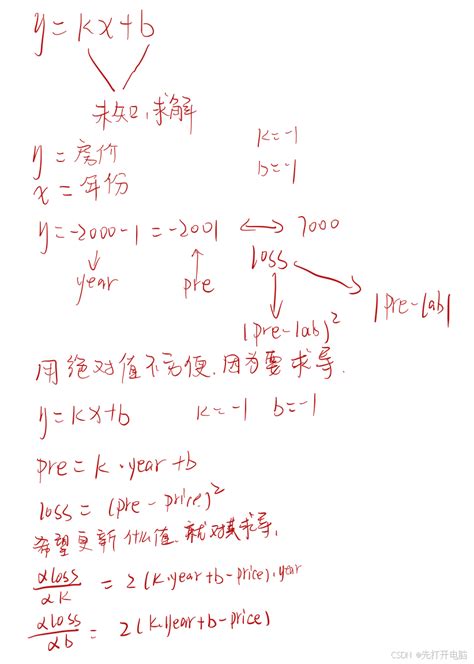 y=kx+b
未知,求解
y=房价
k=-1
x=年份
b=-1
y=-2000-1=-2001 ↔ 7000
year
pre
loss
(pre-lab)²
|pre-lab|
用绝对值不方便.因为要求导.
y=kx+b k=-1 b=-1
pre=k·year+b
loss=(pre-price)²
希望更新什么值,就对其求导,
αloss/αk = 2(k·year+b-price)·year
αloss/αb = 2(k·year+b-price)
CSDN @先打开电脑